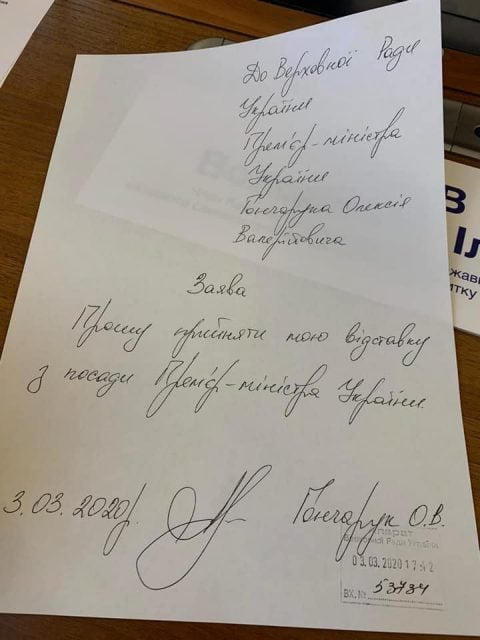 До Верховної Ради
України
Прем'єр-міністра
України
Гончарука Олексія
Валерійовича
Заява
Прошу прийняти мою відставку
з посади Прем'єр-міністра України.
3.03.2020р.
Гончарук О.В.
Апарат
Верховної Ради України
03.03.2020 17:42
ВХ.№ 53734
В
Іл
ржави
итку